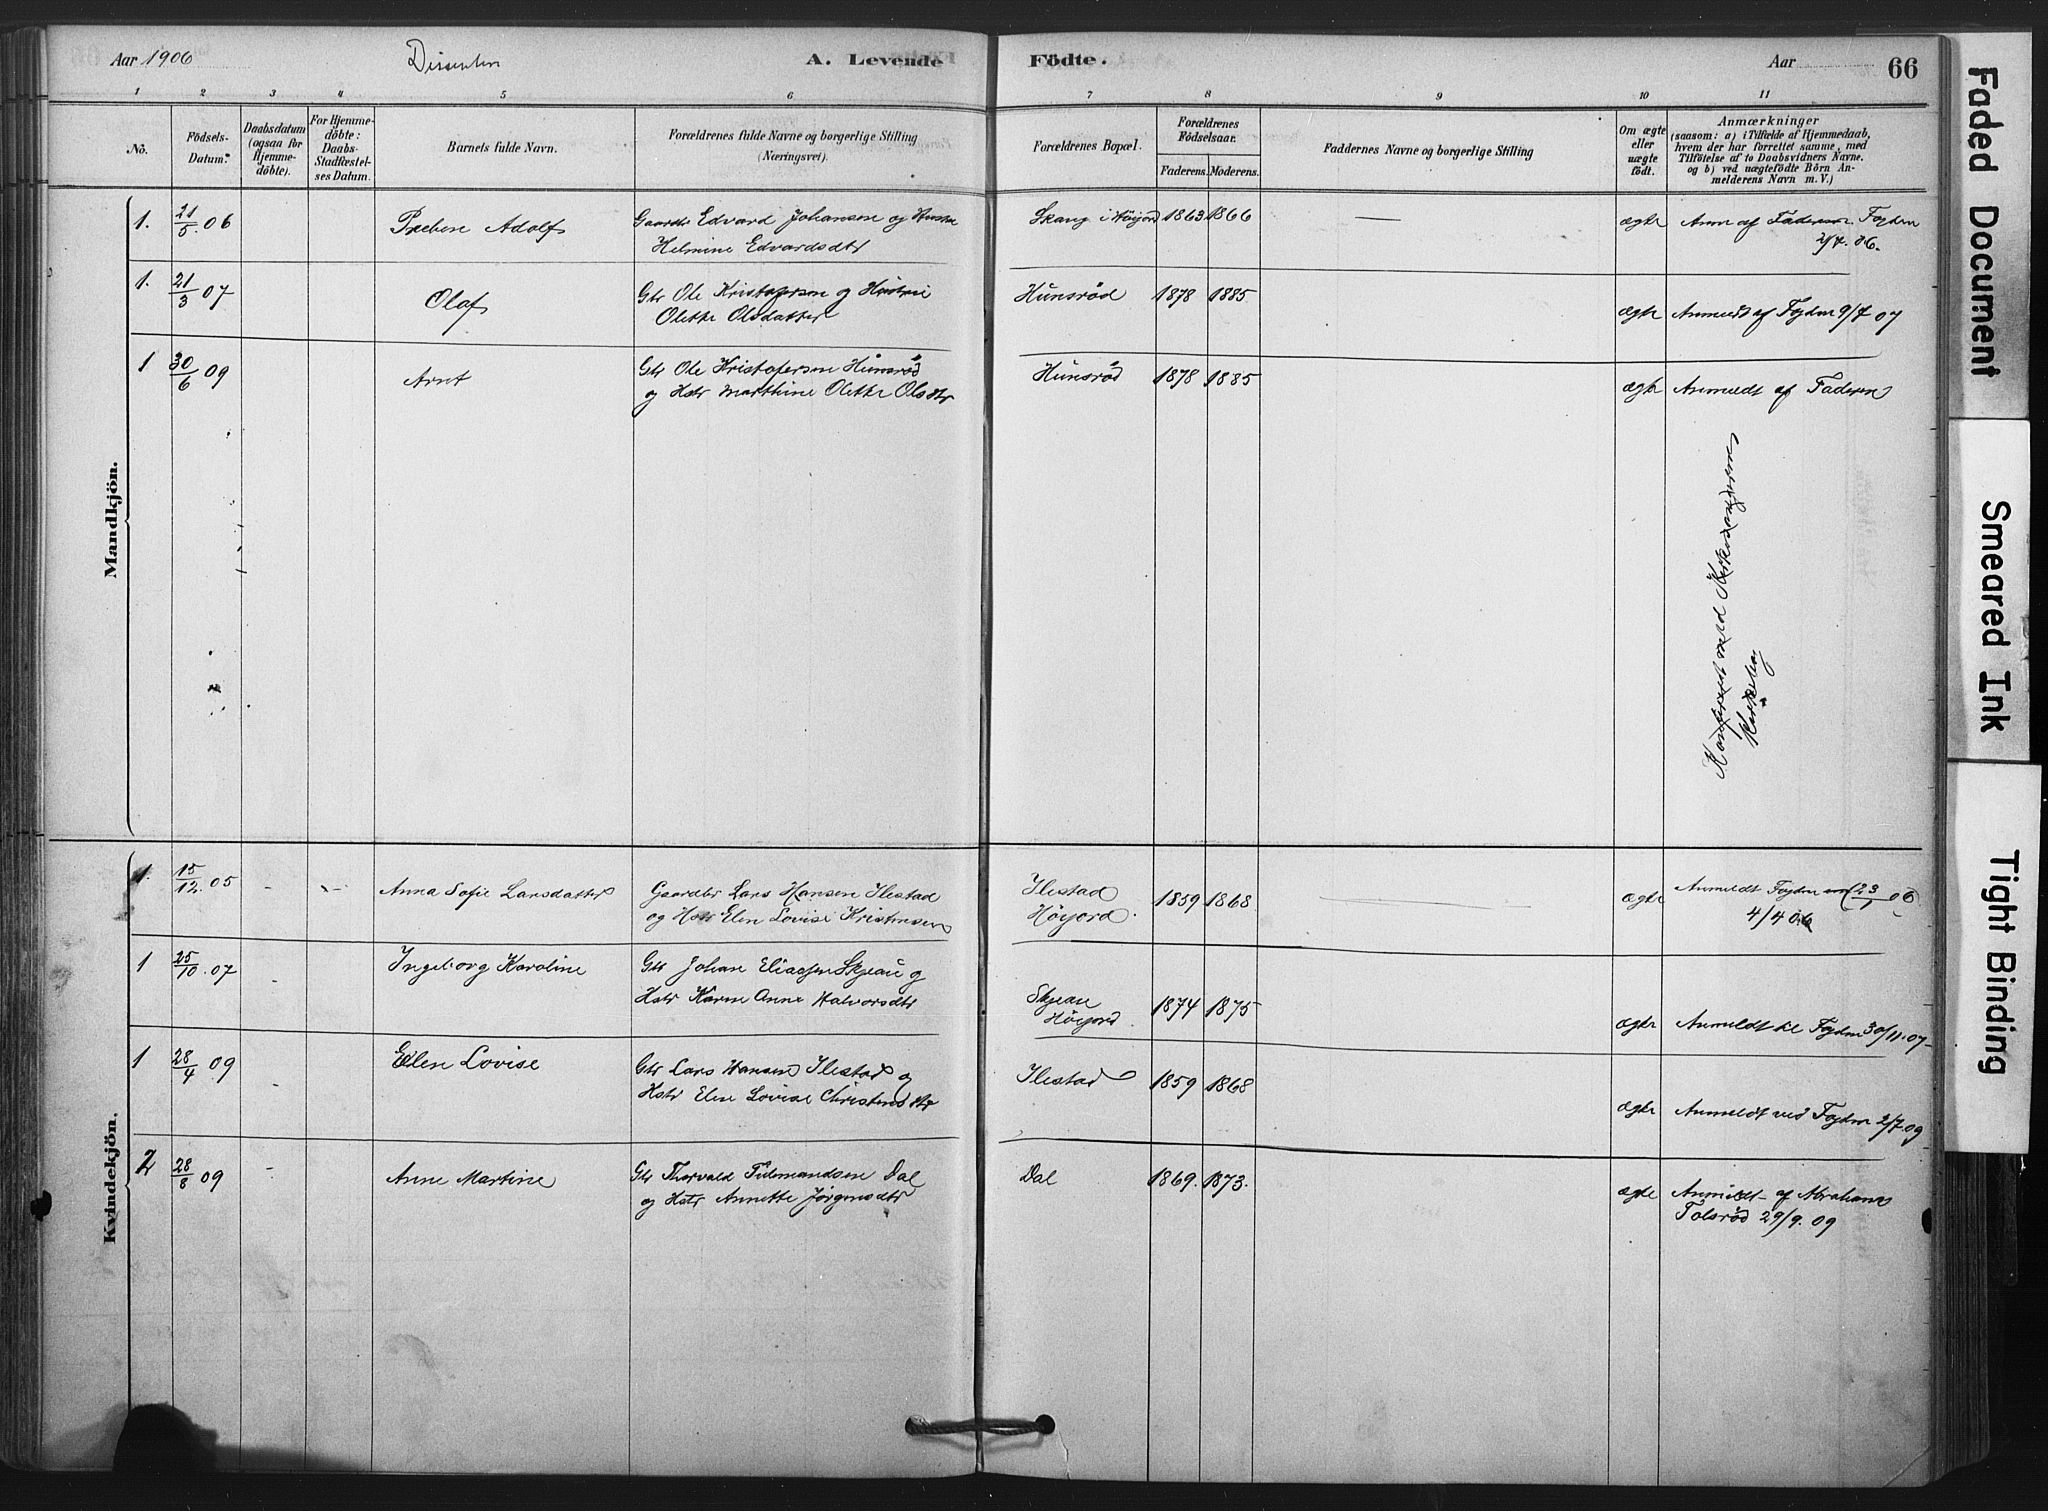 Aar 1906 Dissenter A. Levende Födte. Aar 66
1 2 3 4 5 6 7 8 9 10 11
No. Födsels-Datum. Daabsdatum (ogsaa for Hjemmedöbte). For Hjemmedöbte: Daabs-Stadfæstelses Datum. Barnets fulde Navn. Forældrenes fulde Navne og borgerlige Stilling (Næringsvei). Forældrenes Bopæl. Forældrenes Födselsaar. Faderens. Moderens. Faddernes Navne og borgerlige Stilling Om ægte eller uægte födt. Anmærkninger (saasom: a) i Tilfælde af Hjemmedaab, hvem der har forrettet samme, med Tilföielse af to Daabsvidners Navne. og b) ved uægtefödte Börn Anmelderens Navn m. V.)
Mandkjön.
1. 21/5. 06 Preben Adolf Gaardbr Edvard Johansen og Hustru Skaug i Höyjord 1863 1866 — ægte Anm af Faderen Fogden
Helmine Edvardsdtr 2/7. 06.
1. 21/3 07 Olaf Gbr Ole Kristofersen og Hustru Hunsrød 1878 1885 ægte Anmeldt af Fogden 9/7 07
Olette Olsdatter
1 30/6 09 Arnt Gbr Ole Kristofersen Hunsrød Hunsrød 1878 1885 ægte Anmeldt af Faderen
og Hstr Marthine Olette Olsdtr
Konfereret med Kirkesangerens
Kvindekjön.
1. 15/12. 05 - - Anna Sofie Larsdatter Gaardbr Lars Hansen Ilestad Ilestad 1859 1868 ægte Anmeldt Fogden 23/1 06
og Hstr Elen Lovise Kristensen Höyjord. 4/4 06
1 25/10. 07 - Ingeborg Karoline Gbr Johan Eliassen Skjeau og Skjeau 1874 1875 ægte Anmeldt til Fogden 30/11. 07
Hstr Karen Anne Halvorsdtr Höyjord.
1 28/4 09 - Elen Lovise Gbr Lars Hansen Ilestad og Ilestad 1859 1868 ægte Anmeldt ved Fogden 2/7.09
Hstr Elen Lovise Christensdtr
2 28/8 09 - Anne Martine Gbr Thorvald Tidemandsen Dal Dal 1869. 1873. ægte Anmeldt af Abraham
og Hstr Annette Jörgensdtr Tolsrød 29/9. 09
Faded Document
Smeared Ink
Tight Binding